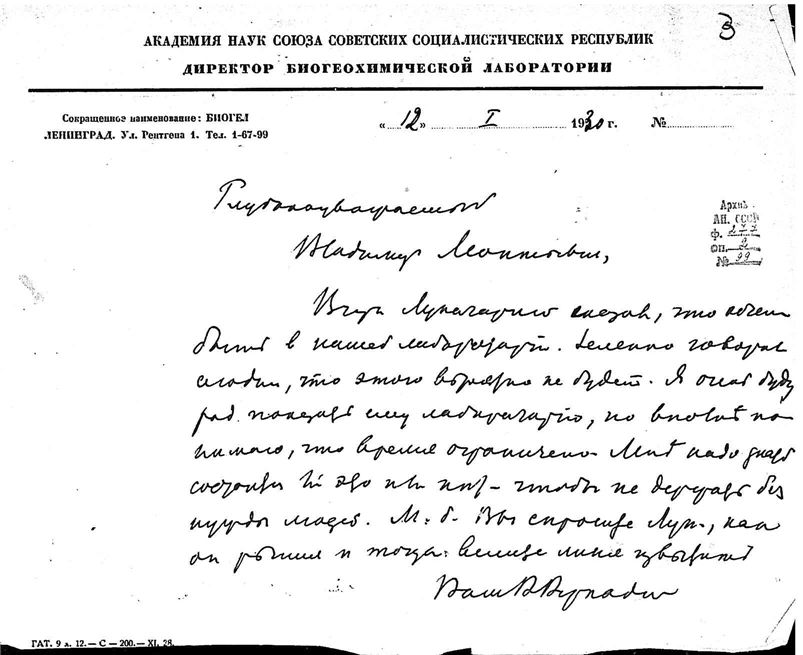 3
АКАДЕМИЯ НАУК СОЮЗА СОВЕТСКИХ СОЦИАЛИСТИЧЕСКИХ РЕСПУБЛИК
ДИРЕКТОР БИОГЕОХИМИЧЕСКОЙ ЛАБОРАТОРИИ
Сокращенное наименование: БИОГЕЛ
ЛЕНИНГРАД. Ул. Рентгена 1. Тел. 1-67-99
«12» I 1930 г. №
Архив
АН. СССР
ф. 277
оп.
№ 99
Глубокоуважаемый
Владимир Леонтьевич,
Вчера Луначарский сказал, что хочет
быть в нашей лаборатории.
что этого не будет. Я очень буду
рад показать ему лабораторию, но вполне по-
нимаю, что время ограничено. Мне надо знать
или нет – чтобы не держать без
нужды людей. М. б. Вы спросите Лун., как
он решил и тогда велите меня известить
Ваш В Вернадский
ГАТ. 9 л. 12.— С — 200.— XI. 28.